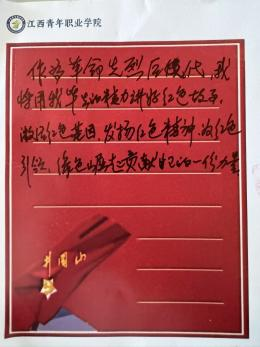 江西青年职业学院
作为革命先烈后代，我
将用我毕生的精力讲好红色故事，
激活红色基因，发扬红色精神，为红色
引领、绿色崛起贡献自己的一份力量
井冈山